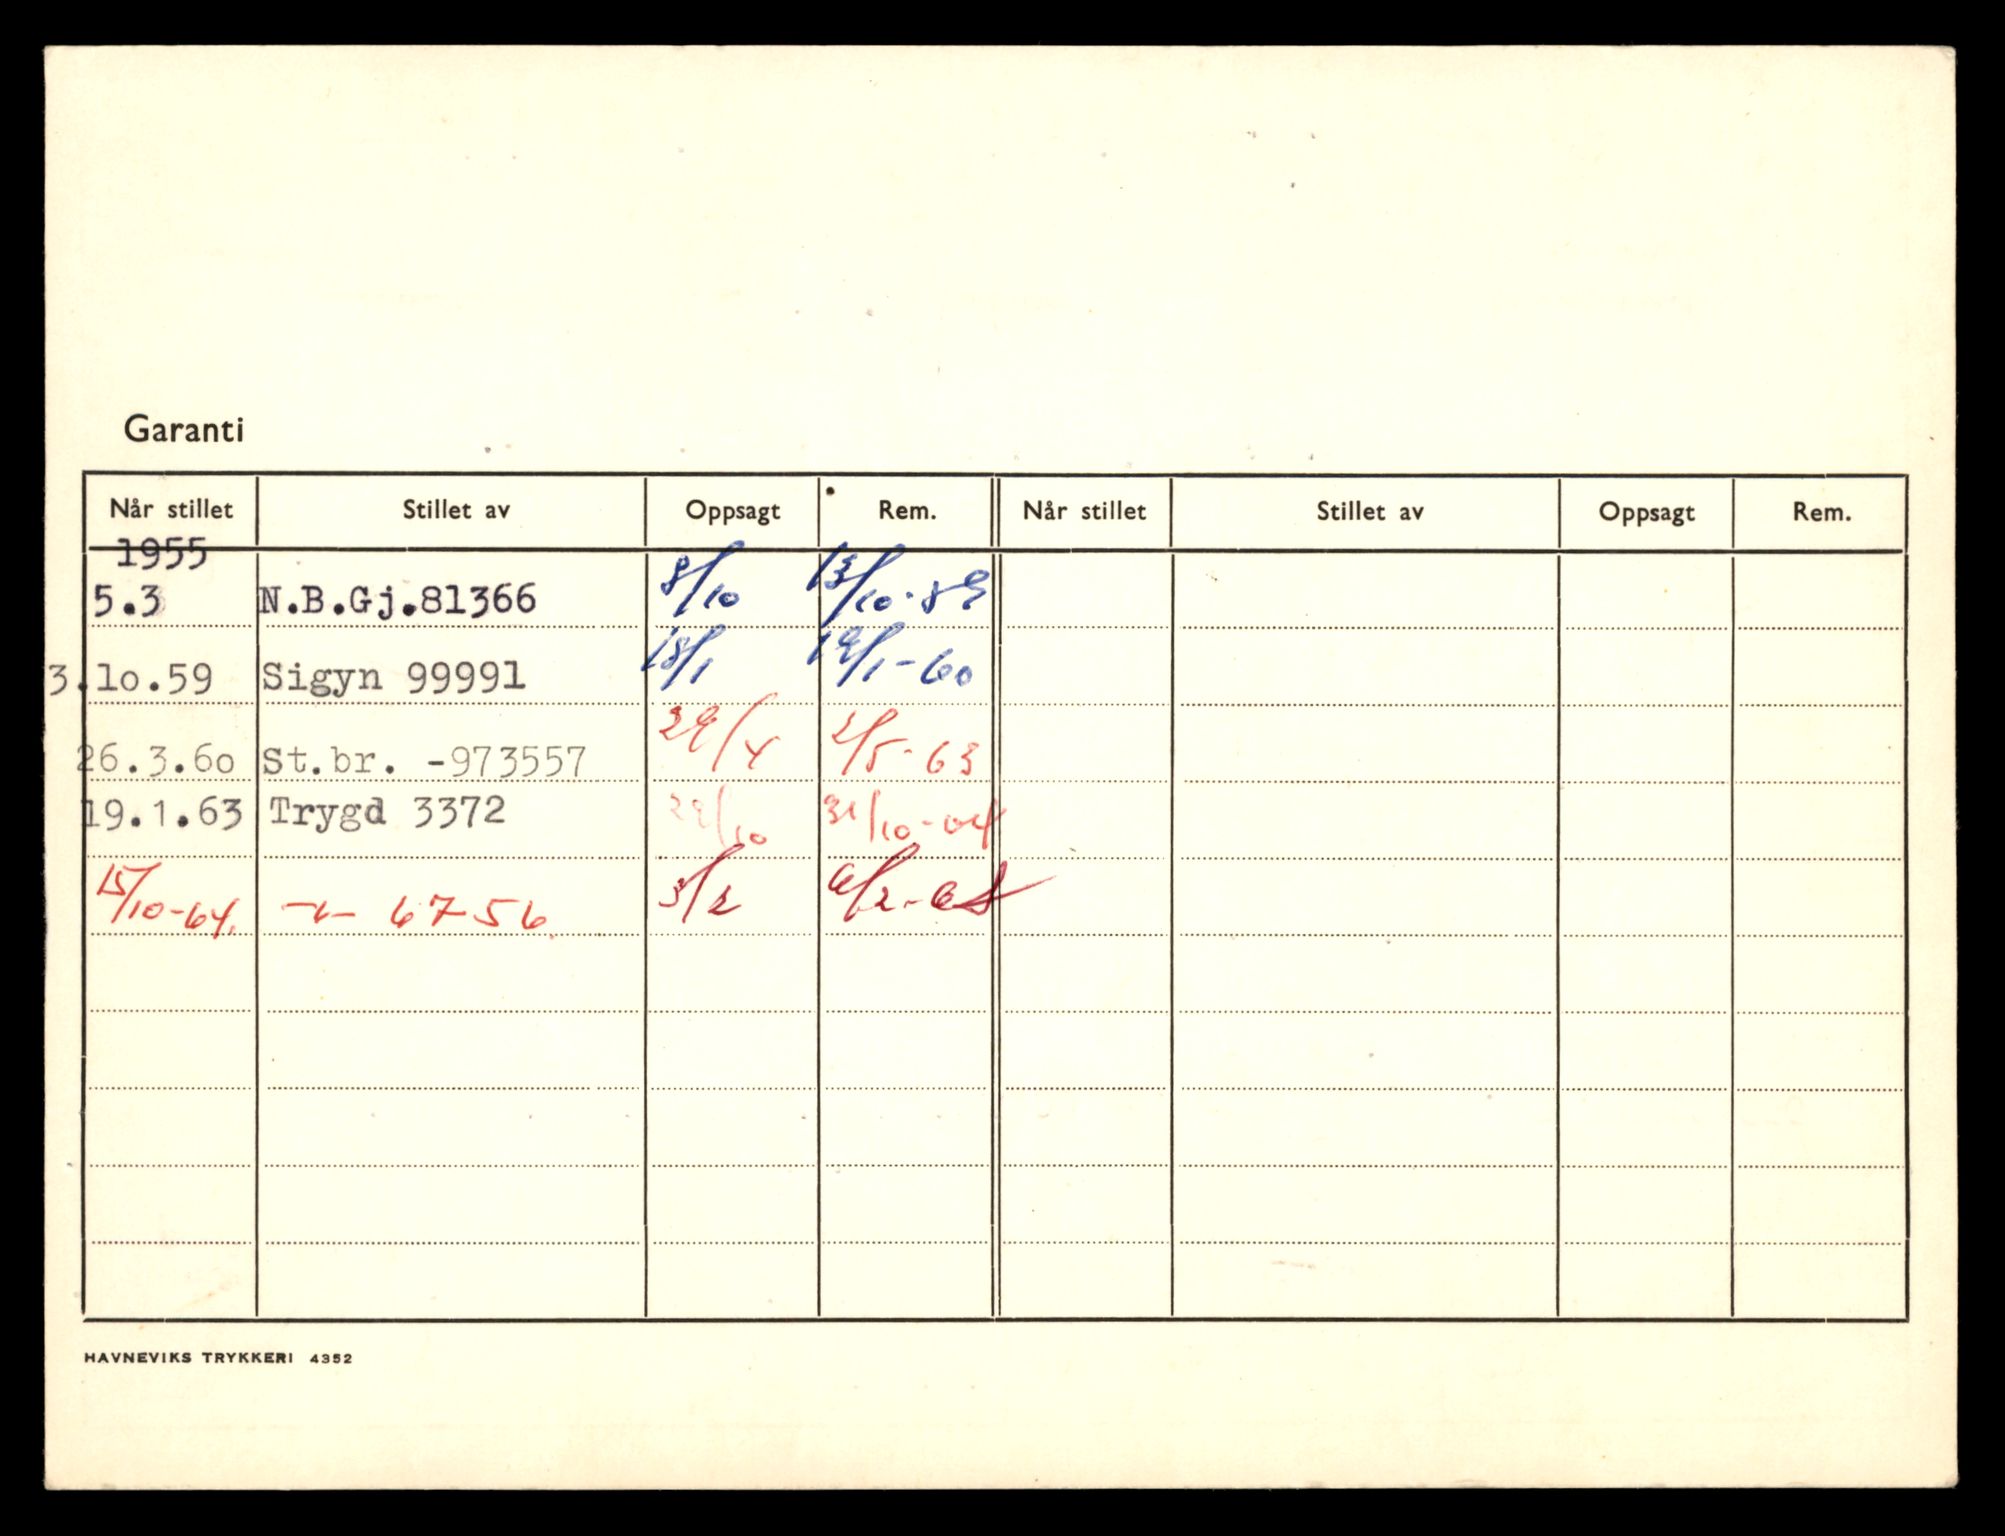 Garanti
Når stillet Stillet av Oppsagt Rem. Når stillet Stillet av Oppsagt Rem.
1955
5.3 N.B.Gj.81366 8/10 13/10-59
3.lo.59 Sigyn 99991 18/1 19/1-60
26.3.6o St.br. -973557 29/4 2/5-63
19.1.63 Trygd 3372 29/10 31/10-64
15/10-64. -"- 6756 3/2 6/2-68
HAVNEVIKS TRYKKERI 4352